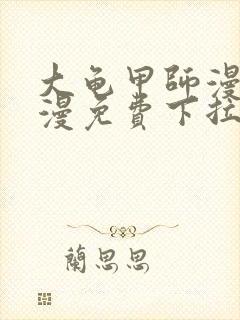 大龟甲師漫
漫免費下拉
蘭思思